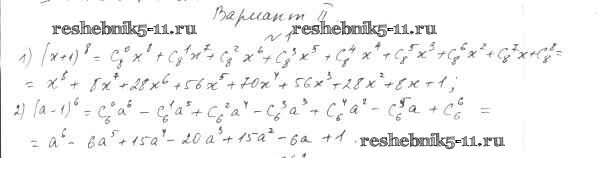 Вариант II
reshebnik5-11.ru reshebnik5-11.ru
№1
1) (x+1)⁸ = C₈⁰x⁸ + C₈¹x⁷ + C₈²x⁶ + C₈³x⁵ + C₈⁴x⁴ + C₈⁵x³ + C₈⁶x² + C₈⁷x + C₈⁸ =
= x⁸ + 8x⁷ + 28x⁶ + 56x⁵ + 70x⁴ + 56x³ + 28x² + 8x + 1;
2) (a-1)⁶ = C₆⁰a⁶ - C₆¹a⁵ + C₆²a⁴ - C₆³a³ + C₆⁴a² - C₆⁵a + C₆⁶ =
= a⁶ - 6a⁵ + 15a⁴ - 20a³ + 15a² - 6a + 1. reshebnik5-11.ru